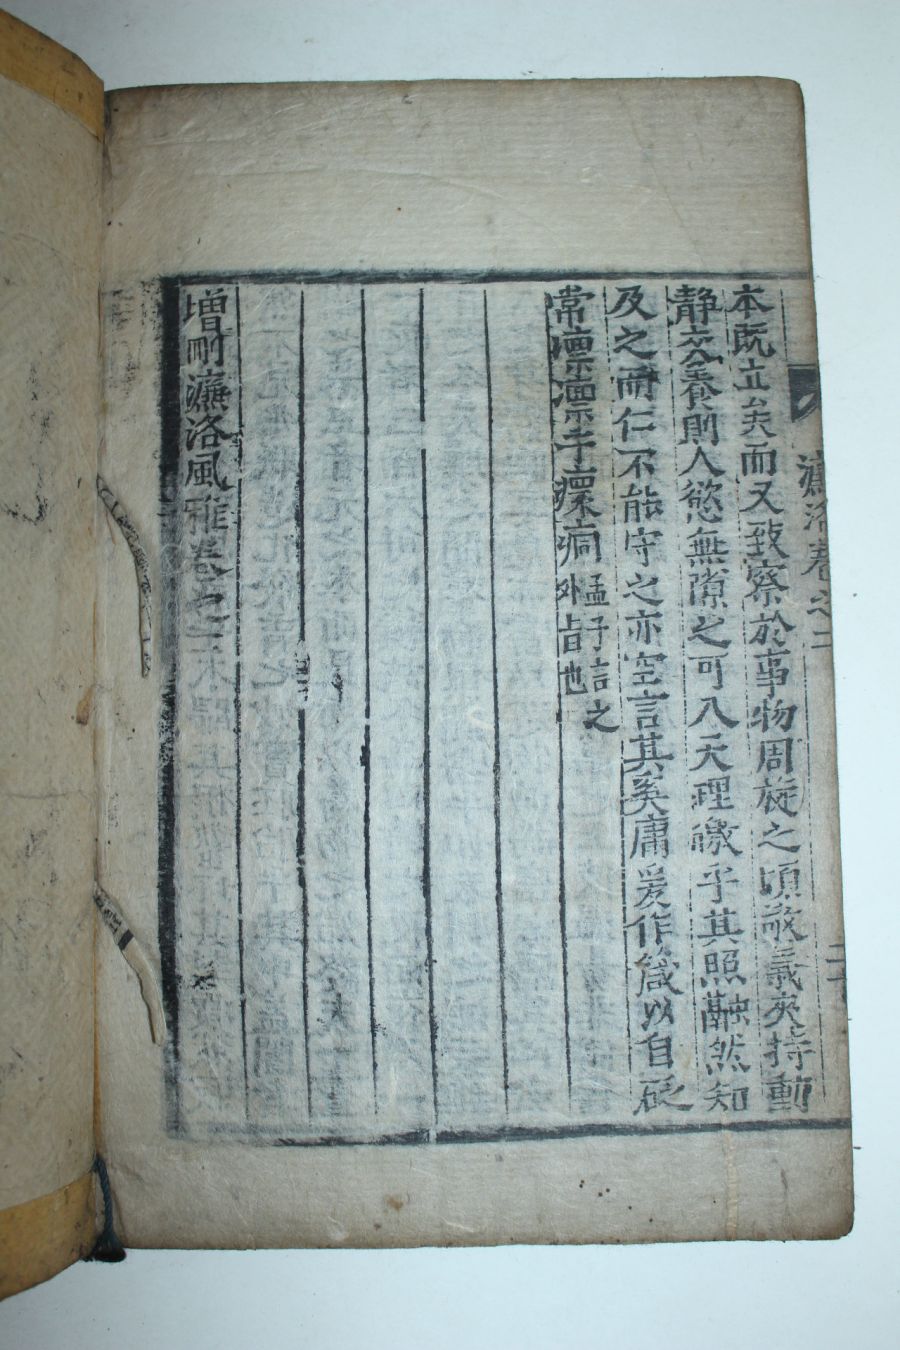 本既立矣而又致察於事物周旋之頃敬義夾持動
靜交養則人慾無隙之可入天理徹乎其照融然知
及之而仁不能守之亦空言其奚庸爰作箴以自砭
常凛凛乎瘝痌
孟子言之
外旨也
增刪濂洛風雅卷之二
濂洛卷之二